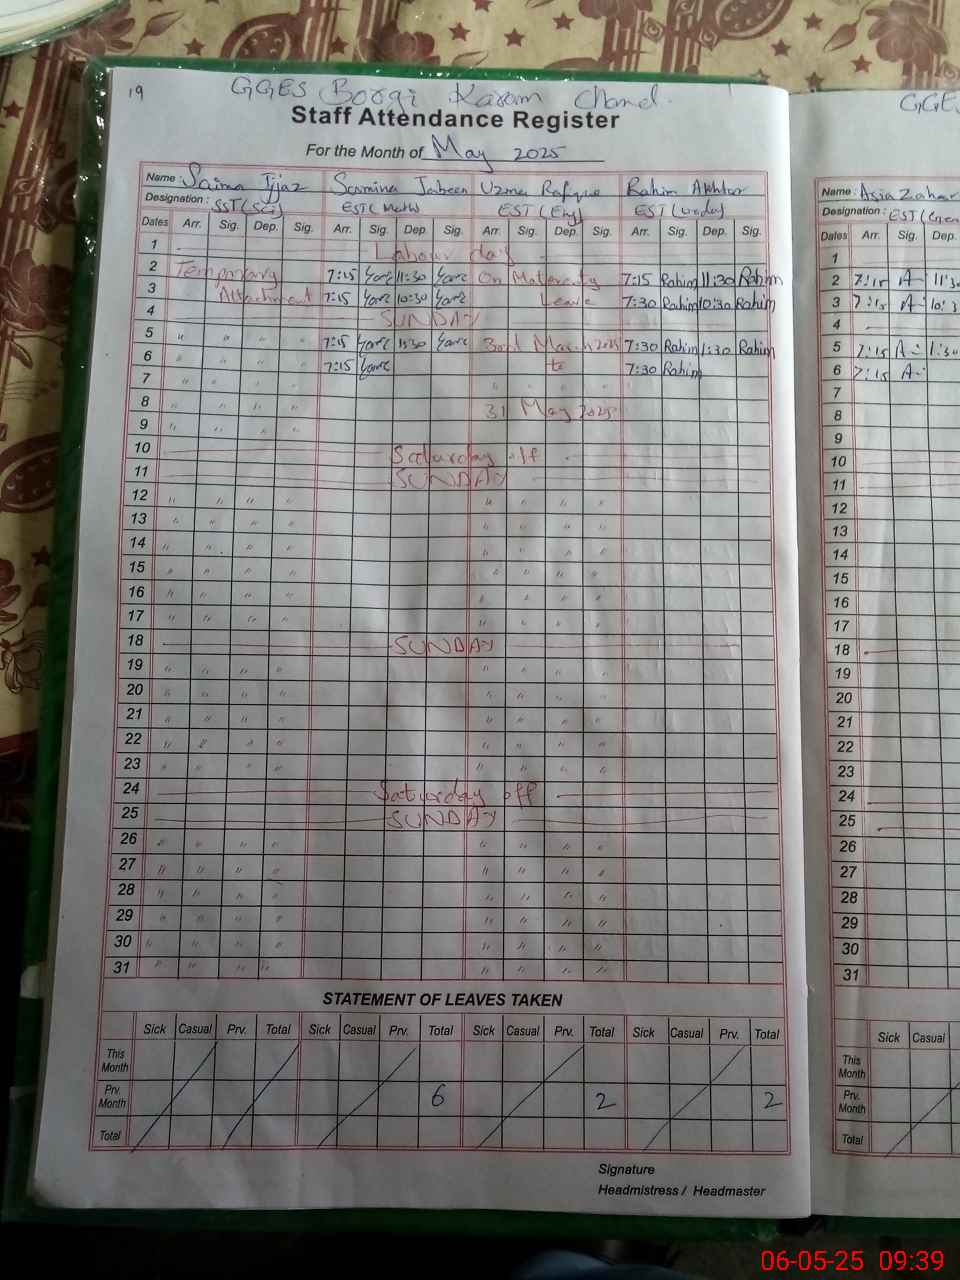 19
GGES Borgi Karam Chand.
GGES
Staff Attendance Register
For the Month of May 2025
Name : Saima Ijjaz Samina Jabeen Uzma Rafique Rahim Akhtar
Designation : SST(Sci) EST(Math) EST(Eng) EST(Urdu)
Dates Arr. Sig. Dep. Sig. Arr. Sig. Dep. Sig. Arr. Sig. Dep. Sig. Arr. Sig. Dep. Sig.
1 Labour day
2 Temporary 7:15 11:30 On Maternity 7:15 Rahim 11:30 Rahim
3 Attachment 7:15 10:30 Leave 7:30 Rahim 10:30 Rahim
4 SUNDAY
5 " " " " 7:15 March 2025 7:30 Rahim 1:30 Rahim
6 " " " " 7:15 to 7:30 Rahim
7 " " " " " " " "
8 " " " " 31 May 2025
9 " " " "
10 Saturday off
11 SUNDAY
12 " " " " " " " "
13 " " " " " " " "
14 " " " " " " " "
15 " " " " " " " "
16 " " " " " " " "
17 " " " " " " " "
18 SUNDAY
19 " " " " " " " "
20 " " " " " " " "
21 " " " " " " " "
22 " " " " " " " "
23 " " " " " " " "
24 Saturday off
25 SUNDAY
26 " " " " " " " "
27 " " " " " " " "
28 " " " " " " " "
29 " " " " " " " "
30 " " " " " " " "
31 " " " " " " " "
STATEMENT OF LEAVES TAKEN
Sick Casual Prv. Total Sick Casual Prv. Total Sick Casual Prv. Total Sick Casual Prv. Total
This Month
Prv. Month 6 2 2
Total
Signature
Headmistress / Headmaster
Name : Asia Zahar
Designation : EST(
Dates Arr. Sig. Dep.
1
2 7:15 A 11:30
3 7:15 A 10:3
4
5 7:15 A 1:30
6 7:15 A
7
8
9
10
11
12
13
14
15
16
17
18
19
20
21
22
23
24
25
26
27
28
29
30
31
Sick Casual
This Month
Prv. Month
Total
06-05-25 09:39